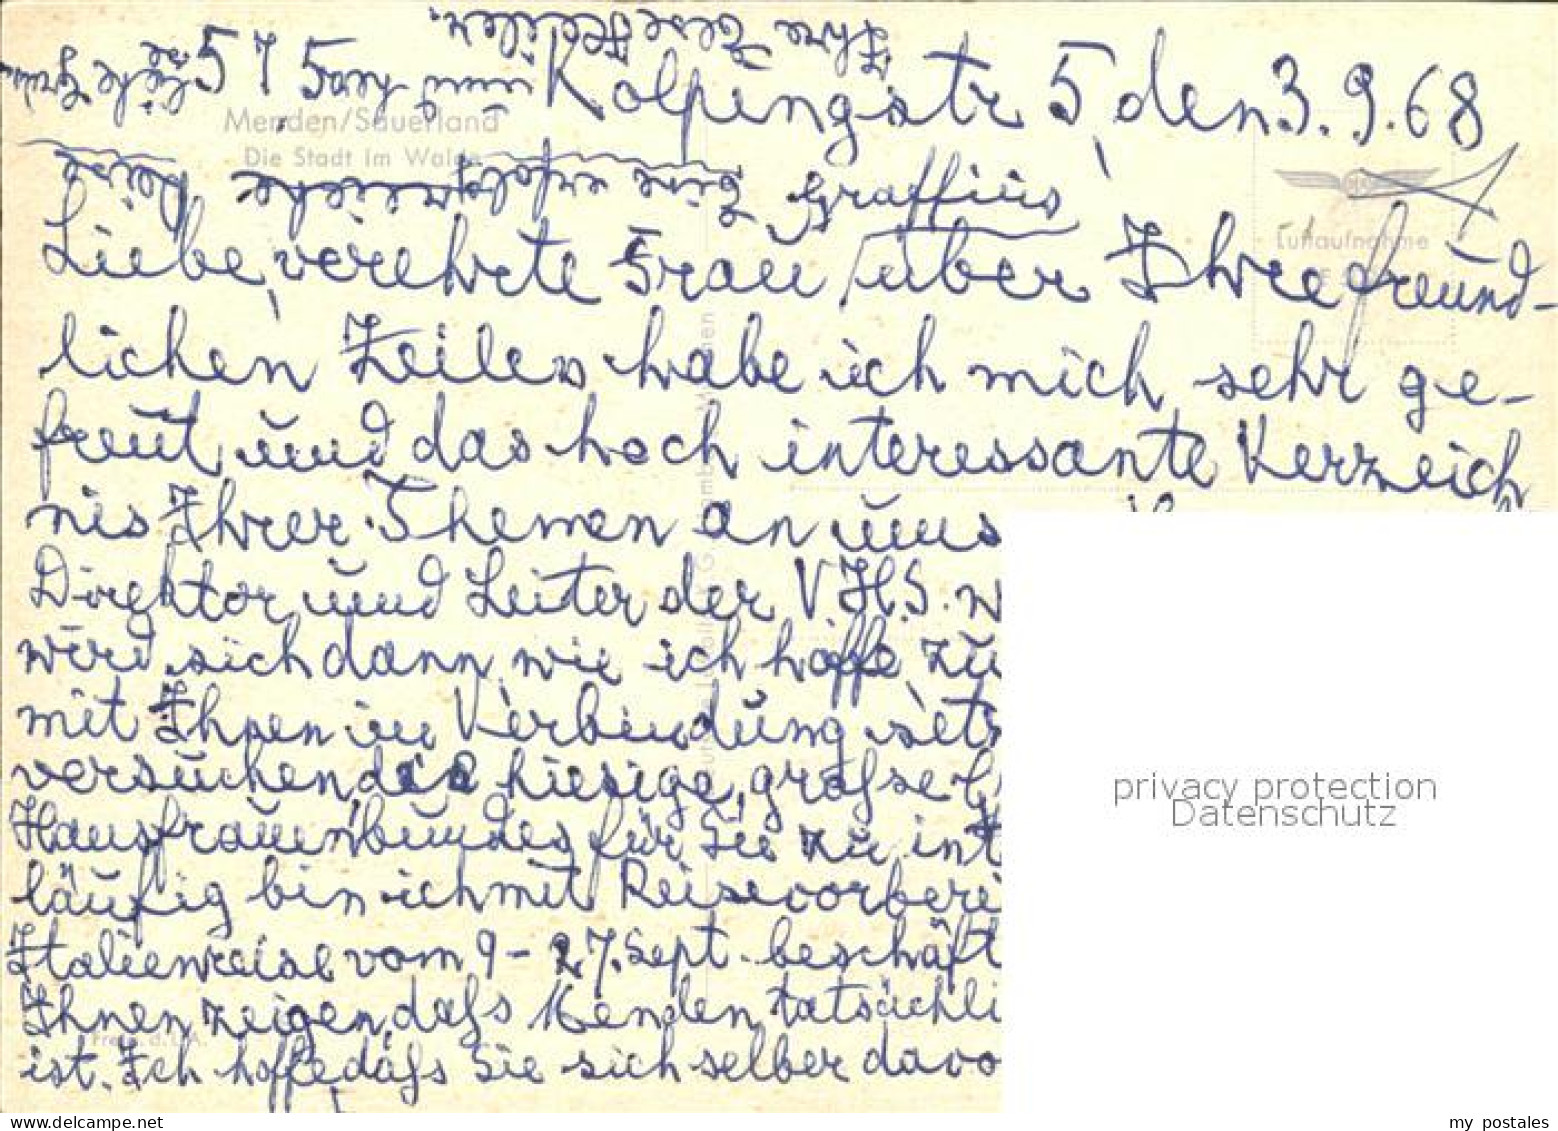 575 Kolpingstr 5, den 3. 9. 68
Menden/Sauerland
Die Stadt im Walde
Graffius
Luftaufnahme
Liebe, verehrte Frau / über Ihre freund-
lichen Zeilen habe ich mich sehr ge-
freut und das hoch interessante Verzeich
nis Ihrer Themen an uns
Direktor und Leiter der V.H.S. w
wird sich dann, wie ich hoffe, zu
mit Ihnen in Verbindung setz
versuchen die hiesige, grosse G
Hausfrauenbundes für Sie zu int
läufig bin ich mit Reisevorberei
Italienreise vom 9 - 27. Sept. beschäft
Ihnen zeigen, dass Menden tatsächli
ist. Ich hoffe dass Sie sich selber davo
eine erfolgreiche Reise
und herz
liche Grüße
Ihre
privacy protection
Datenschutz
my postales